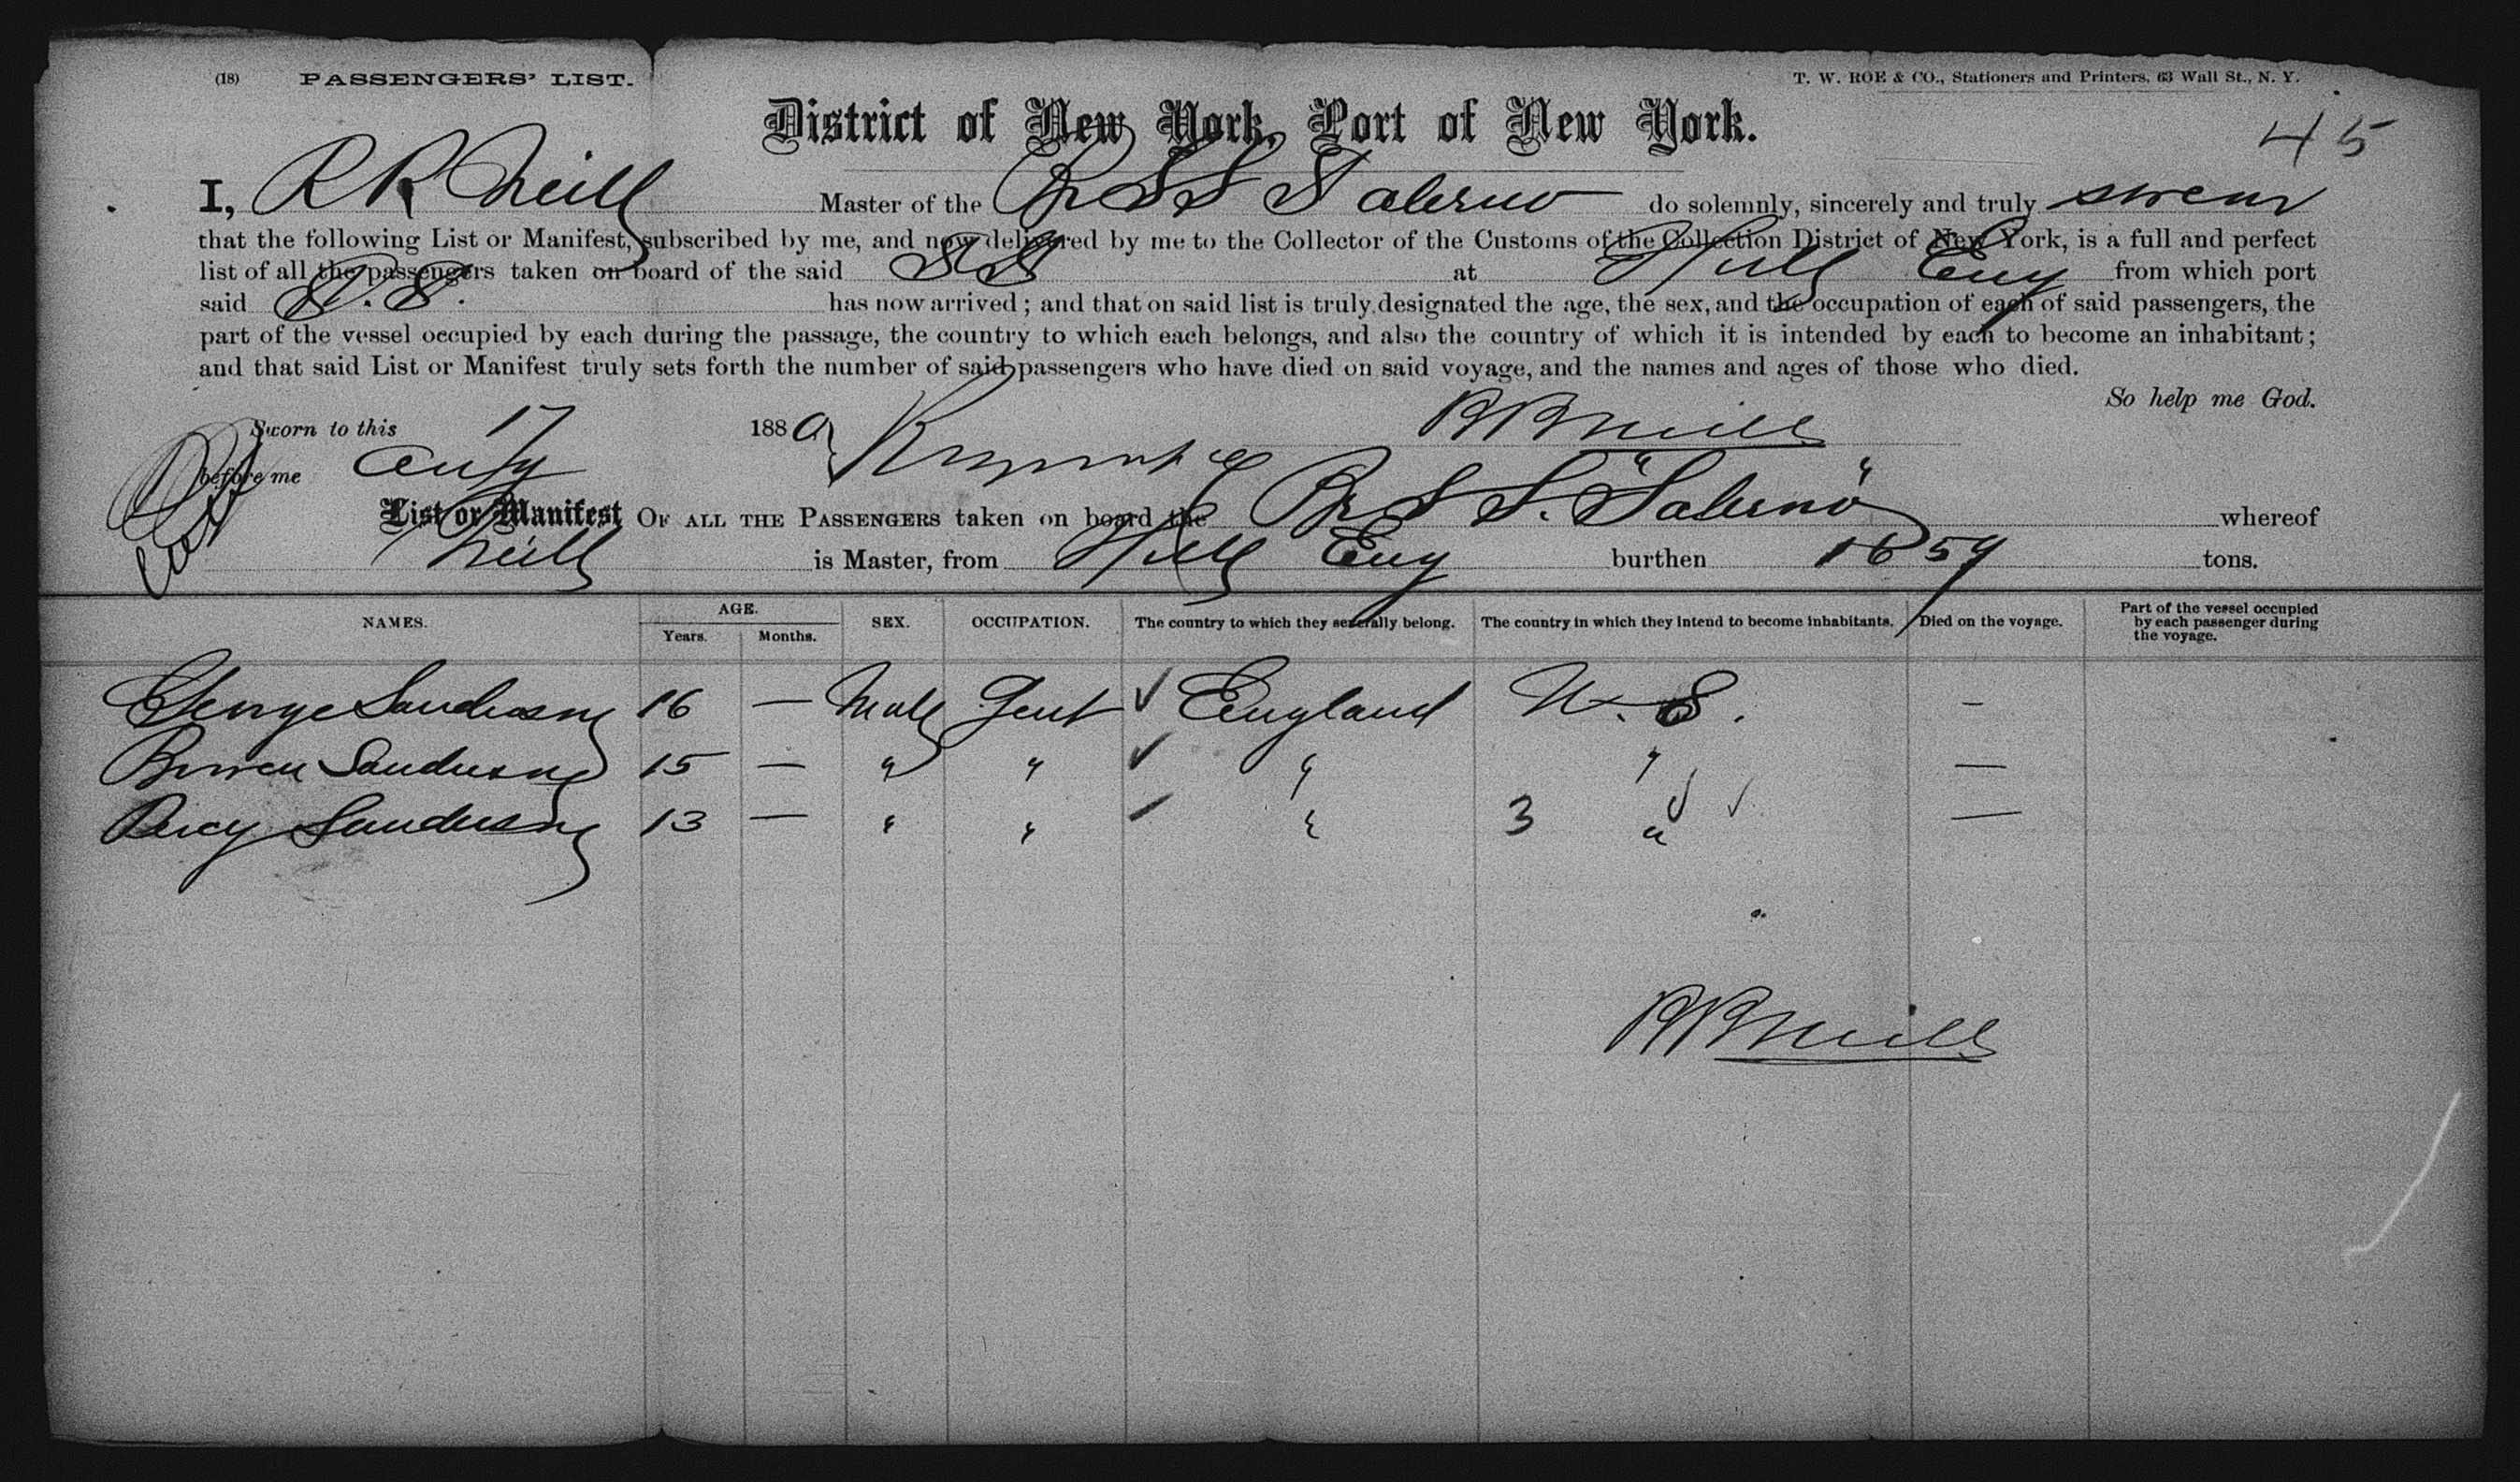 (18) PASSENGERS' LIST. T. W. ROE & CO., Stationers and Printers, 63 Wall St., N. Y.
District of New York, Port of New York.
45
I, R R Neill Master of the Br SS Salerno do solemnly, sincerely and truly swear
that the following List or Manifest, subscribed by me, and now delivered by me to the Collector of the Customs of the Collection District of New York, is a full and perfect
list of all the passengers taken on board of the said SS at Hull Eng from which port
said S.S. has now arrived; and that on said list is truly designated the age, the sex, and the occupation of each of said passengers, the
part of the vessel occupied by each during the passage, the country to which each belongs, and also the country of which it is intended by each to become an inhabitant;
and that said List or Manifest truly sets forth the number of said passengers who have died on said voyage, and the names and ages of those who died.
So help me God.
Sworn to this 17 188 R R Neill
before me Aug
List or Manifest OF ALL THE PASSENGERS taken on board the Br S S. "Salerno" whereof
Neill is Master, from Hull Eng burthen 1659 tons.
NAMES. AGE. Years. Months. SEX. OCCUPATION. The country to which they severally belong. The country in which they intend to become inhabitants. Died on the voyage. Part of the vessel occupied by each passenger during the voyage.
George Sanderson 16 — Male Gent ✓ England U. S. —
Bowen Sanderson 15 — " " ✓ " " —
Percy Sanderson 13 — " " " 3 " ✓ ✓ —
R R Neill